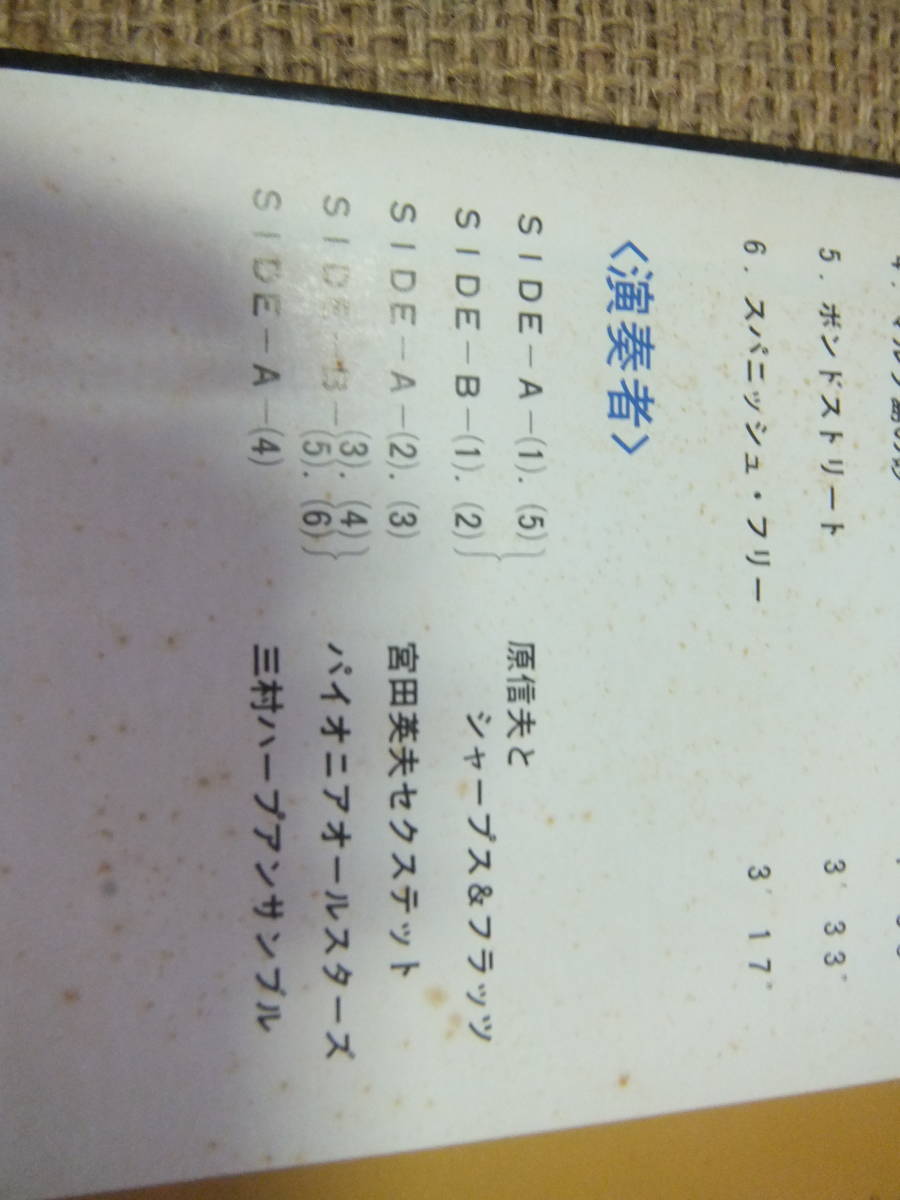 5. ボンドストリート 3′33″
6. スパニッシュ・フリー 3′17″
〈演奏者〉
SIDE－A－(1). (5)} 原信夫と
SIDE－B－(1). (2)} シャープス&フラッツ
SIDE－A－(2). (3) 宮田英夫セクステット
SIDE－B－(3). (4)} パイオニアオールスターズ
(5). (6)}
SIDE－A－(4) 三村ハープアンサンブル